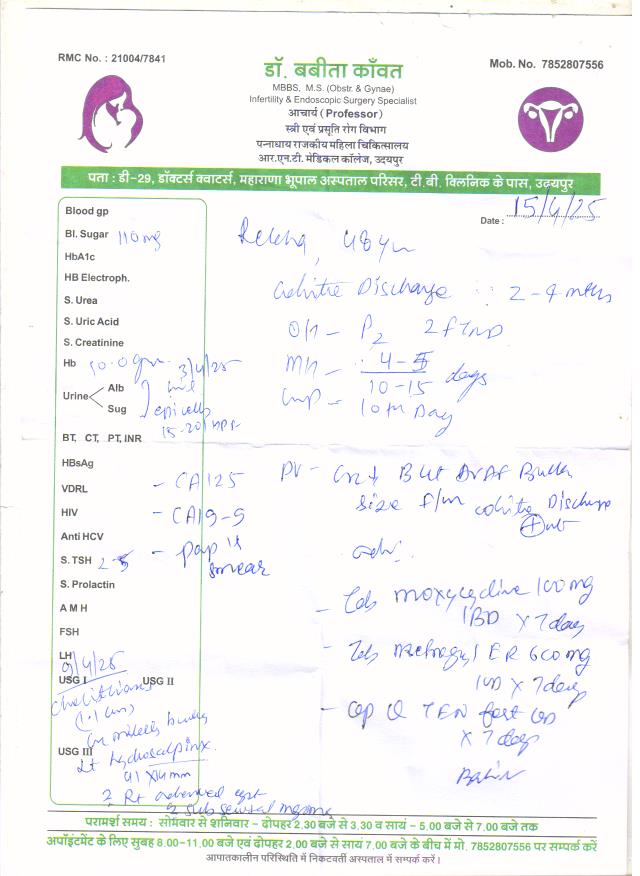 RMC No. : 21004/7841
Mob. No. 7852807556
डॉ. बबीता काँवत
MBBS, M.S. (Obstr. & Gynae)
Infertility & Endoscopic Surgery Specialist
आचार्य (Professor)
स्त्री एवं प्रसूति रोग विभाग
पन्नाधाय राजकीय महिला चिकित्सालय
आर.एन.टी. मेडिकल कॉलेज, उदयपुर
पता : डी-29, डॉक्टर्स क्वाटर्स, महाराणा भूपाल अस्पताल परिसर, टी.बी. क्लिनिक के पास, उदयपुर
Date : 15/4/25
Blood gp
Bl. Sugar 110 mg
HbA1c
HB Electroph.
S. Urea
S. Uric Acid
S. Creatinine
Hb 10.0 gm 3/4/25
Urine Alb Sug nil
epi cells
15-20/HPF
BT, CT, PT, INR
HBsAg
VDRL
HIV
Anti HCV
S. TSH 2.5
S. Prolactin
A M H
FSH
LH
9/4/25
USG I USG II
(1.1 cm)
USG III
Lt hydrosalpinx
41 X 14 mm
? Rt adnexal cyst
- CA125
- CA19-9
- pap's
smear
Rekha, 48 yr
white Discharge 2-4 mths
O/H - P2 2 FTND
MH - 4-5
10-15 days
LMP - 10th Day
PV - Cx Ut AVAF Bulky
size white Discharge
Adv.
- Tab moxycycline 100 mg
1BD X 7 days
- Tab Metrogyl ER 600 mg
1OD X 7 days
- Cap Q TEN fort OD
X 7 days
परामर्श समय : सोमवार से शनिवार – दोपहर 2.30 बजे से 3.30 व सायं – 5.00 बजे से 7.00 बजे तक
अपॉइंटमेंट के लिए सुबह 8.00-11.00 बजे एवं दोपहर 2.00 बजे से सायं 7.00 बजे के बीच में मो. 7852807556 पर सम्पर्क करें
आपातकालीन परिस्थिति में निकटवर्ती अस्पताल में सम्पर्क करें।